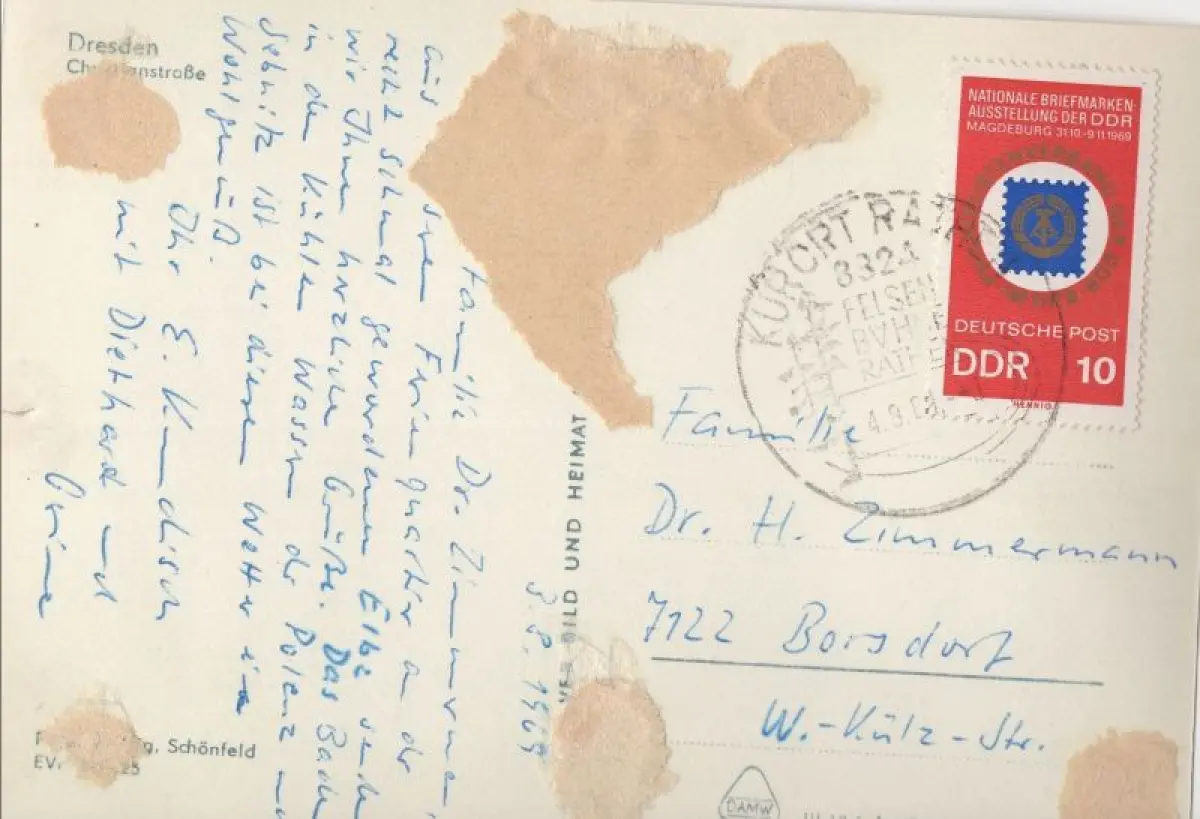 Dresden
3.8.1969
Familie Dr. Zimmermann
aus dem Ferienquartier an der
recht schmal gewordenen Elbe sende
wir Ihnen herzliche Grüße. Das Baden
in den kühlen Wassern der Polenz und
Sebnitz ist bei diesem Wetter ein
Wohlgenuß.
Ihr E. Kundisch
mit Diethard und
VER BILD UND HEIMAT
Schönfeld
NATIONALE BRIEFMARKEN-
AUSSTELLUNG DER DDR
MAGDEBURG 31.10.-9.11.1969
DEUTSCHE POST
DDR 10
HENNIG
KURORT RATHEN
8324
FELSEN
BÜHNE
RATHEN
Familie
Dr. H. Zimmermann
7122 Borsdorf
W.-Külz-Str.
DAMW